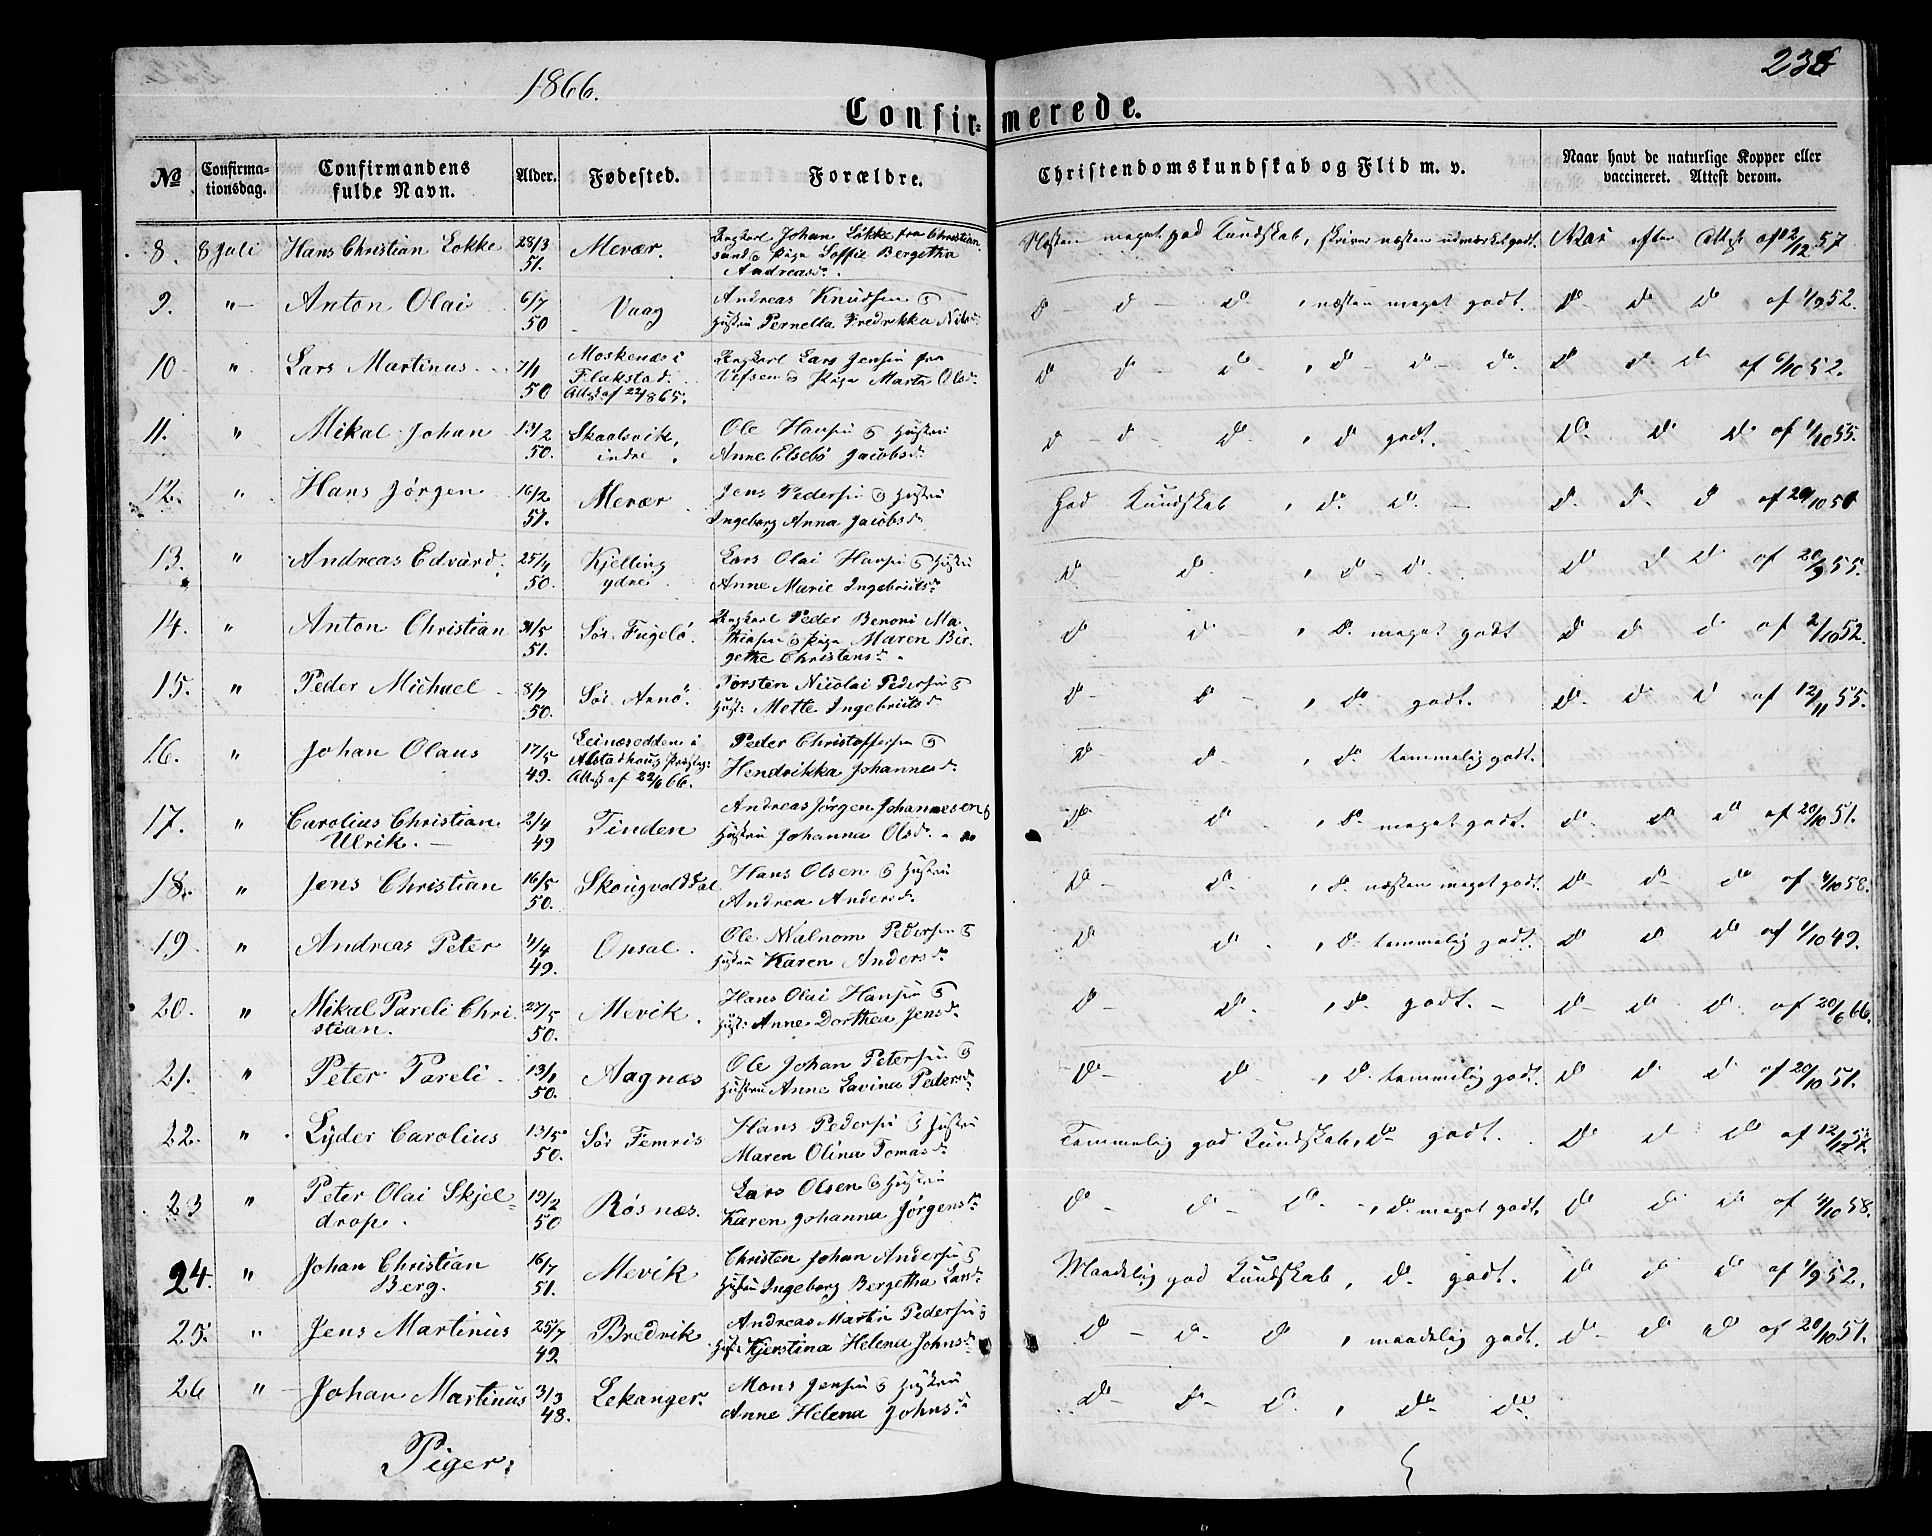 1866.
238
Confirmerede.
No
Confirmationsdag.
Confirmandens fulde Navn.
Alder.
Fødested.
Forældre.
Christendomskundskab og Flid m. v.
Naar havt de naturlige Kopper eller vaccineret. Attest derom.
8. 8 Juli Hans Christian Lokke 28/3 51. Mevær. Ungkarl Johan Løkke fra Christian
sund & Pige Soffie Bergetha
Andreasd.
Næsten meget god Kundskab, skriver næsten udmærket godt. Vac. efter Attest af 12/12 57
9. " Anton Olai 6/7 50 Vaag Andreas Knudsen &
Hustru Pernella Fredrikka Nilsd.
d d d , næsten meget godt. d d d af 1/9 52.
10 " Lars Martinus 7/1 50 Moskenæs i
Flakstad.
Attest af 22/4 865. Ungkarl Lars Jensen fra
Vefsen & Pige Marta Olsd.
d d d , d d d. d d d af 6/10 52.
11. " Mikal Johan 13/2 50. Skaalsvik,
indre Ole Hansen & Hustru
Anne Elsebø Jacobsd.
d d d , d godt. d d d af 1/10 55.
12. " Hans Jørgen 16/2 51. Mevær Jens Pedersen & Hustru
Ingeborg Anna Jacobsd.
God Kundskab , d. d. d. d. d af 20/10 51
13. " Andreas Edvard 25/4 50. Kjelling
ydre Lars Olai Hansen & Hustru
Anne Marie Ingebrigtsd.
d d , d d. d d d af 20/9 55.
14. " Anton Christian 31/5 51. Sør. Fugelø. Ungkarl Peder Benoni Ma
thiasen & Pige Maren Bir
gethe Christensd.
d d , d. meget godt d d d af 2/10 52.
15. " Peder Michael 8/7 50. Sør. Arnø Torsten Nicolai Pedersen &
Hust: Mette Ingebrigtsd
d d , d godt. d d d af 12/11 55.
16. " Johan Olaus 17/5 49. Leinæsodden i
Alstadhaug Præstegj:
Attest af 22/6 66. Peder Christoffersen &
Hendrikka Johannesd.
d d , d temmelig godt.
17. " Carolius Christian
Ulrik. 2/4 49 Tinden Andreas Jørgen Johannesen &
Hustru Johanna Olsd.
d d , d. meget godt. d d d af 20/10 51.
18. " Jens Christian 16/5 50. Skougvolddal Hans Olsen & Hustru
Andrea Andersd.
d d , d. næsten meget godt. d d d af 4/10 58.
19. " Andreas Peter 4/4 49. Opsal. Ole Malnom Pedersen &
Hustru Karen Andersd
d d , d. temmelig godt. d d d af 1/10 49.
20. " Mikal Pareli Chri
stian. 27/5 50. Mevik Hans Olai Hansen &
Hust: Anne Dorthea Jensd.
d d , d. godt. d d d af 20/6 66.
21. " Peter Pareli 13/1 50. Aagnæs Ole Johan Petersen &
Hustru Anne Lavina Pedersd
d d , d. temmelig godt. d d d af 20/10 51.
22. " Lyder Carolius 13/5 50. Sør Femris Hans Pedersen & Hustru
Maren Olina Tomasd.
Temmelig god Kundskab, d godt. d d d af 12/12 57.
23 " Peter Olai Skjel=
drop. 19/2 50 Røsnæs. Lars Olsen & Hustru
Karen Johanna Jørgensd.
d d d , d. meget godt. d d d af 4/10 58.
24. " Johan Christian
Berg. 16/7 51. Mevik Christen Johan Andersen &
Hustru Ingeborg Bergetha Larsd.
Maadelig god Kundskab, d. godt. d d d af 1/9 52.
25. " Jens Martinus 25/7 49. Bredvik Andreas Martin Pedersen &
Hust: Kjerstina Helena Johnsd
d d d , maadelig godt. d d d af 20/10 51.
26 " Johan Martinus 3/3 48. Lekanger. Mons Jensen & Hustru
Anne Helena Johnsd
d d d , d d
Piger: